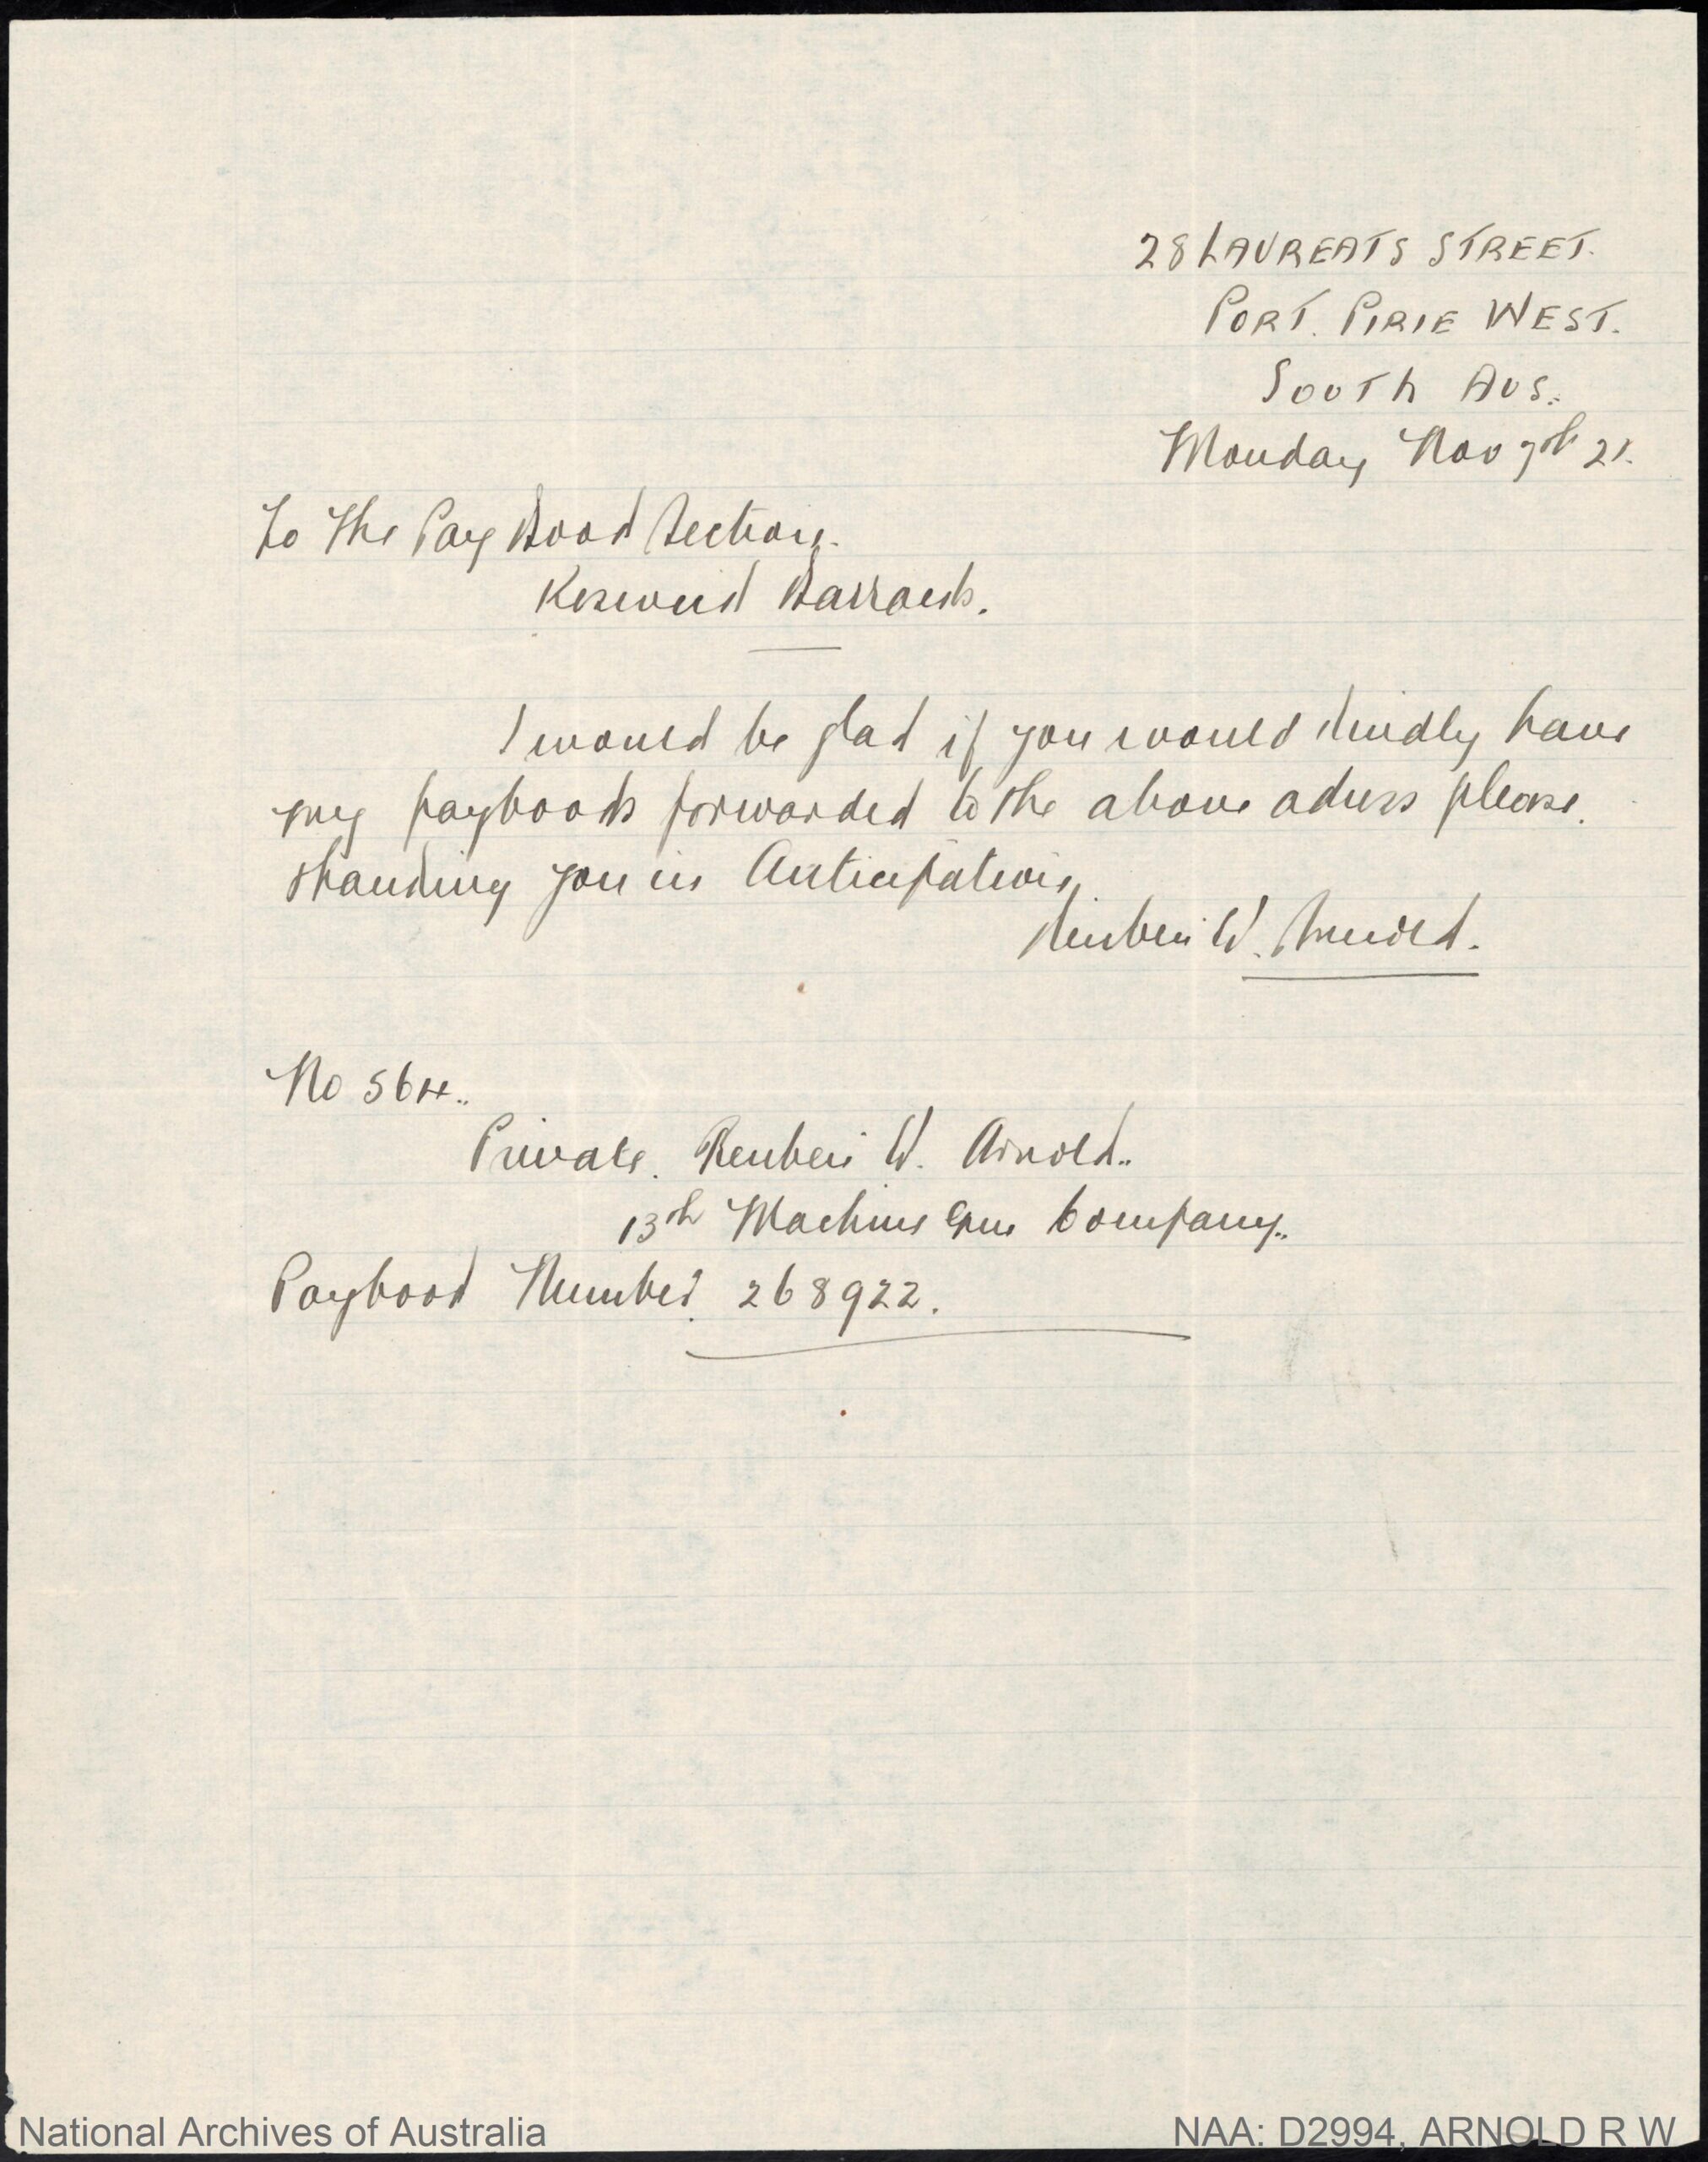 28 LAUREATS STREET.
PORT. PIRIE WEST.
SOUTH AUS.
Monday Nov 7th 21.
To The Pay Book Section.
Keswick Barracks.
I would be glad if you would kindly have
my paybook forwarded to the above adress please.
thanking you in Anticipation,
Reuben W. Arnold.
No 564..
Private. Reuben W. Arnold..
13th Machine Gun Company..
Paybook Number. 268922.
National Archives of Australia
NAA: D2994, ARNOLD R W